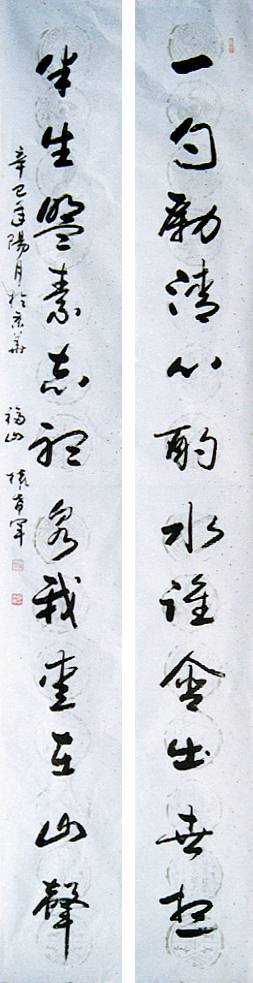 一勺勵清心酌水誰含出世想
半生盟素志聽泉我愛在山聲
辛巳年陽月於京華 福山